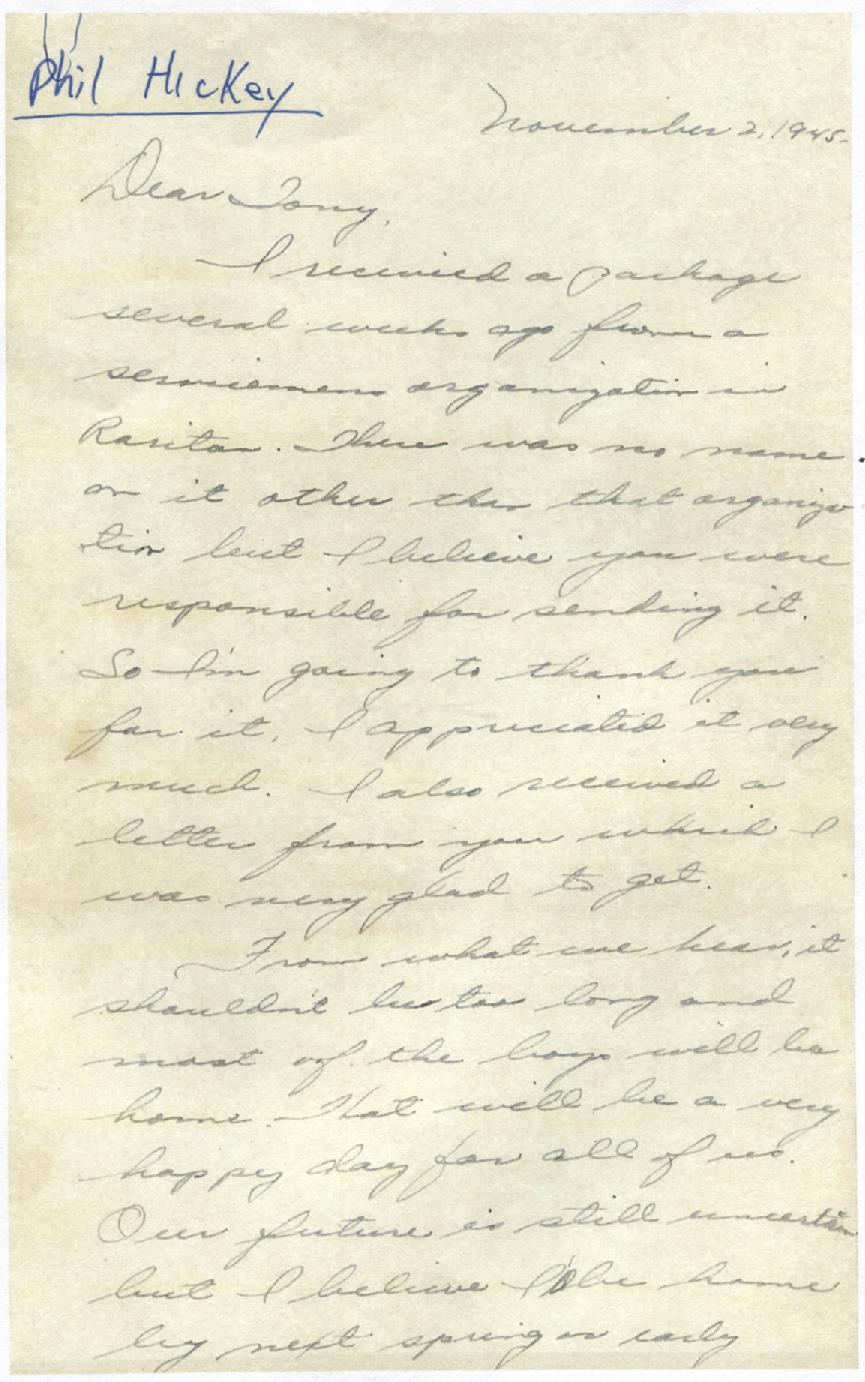 Phil Hickey
November 2, 1945.
Dear Tony,
I received a package
several weeks ago from a
servicemens organization in
Raritan. There was no name
on it other than that organiza
tion but I believe you were
responsible for sending it.
So I'm going to thank you
for it. I appreciated it very
much. I also received a
letter from you which I
was very glad to get.
From what we hear, it
shouldn't be too long and
most of the boys will be
home. That will be a very
happy day for all of us.
Our future is still uncertain
but I believe I'll be home
by next spring or early